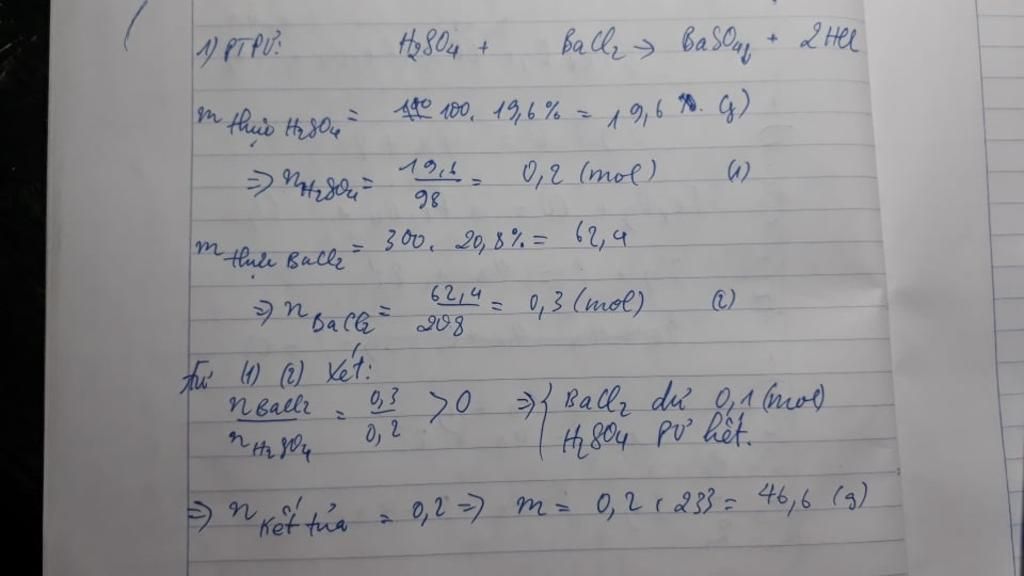 1) PTPƯ: H2SO4 + BaCl2 → BaSO4↓ + 2HCl
m thực H2SO4 = 100. 19,6% = 19,6 (g)
⇒ nH2SO4 = 19,6/98 = 0,2 (mol) (1)
m thực BaCl2 = 300. 20,8% = 62,4
⇒ nBaCl2 = 62,4/208 = 0,3 (mol) (2)
Từ (1) (2) Xét:
nBaCl2/nH2SO4 = 0,3/0,2 > 0 ⇒ { BaCl2 dư 0,1 (mol)
H2SO4 PƯ hết.
⇒ n kết tủa = 0,2 ⇒ m = 0,2 . 233 = 46,6 (g)